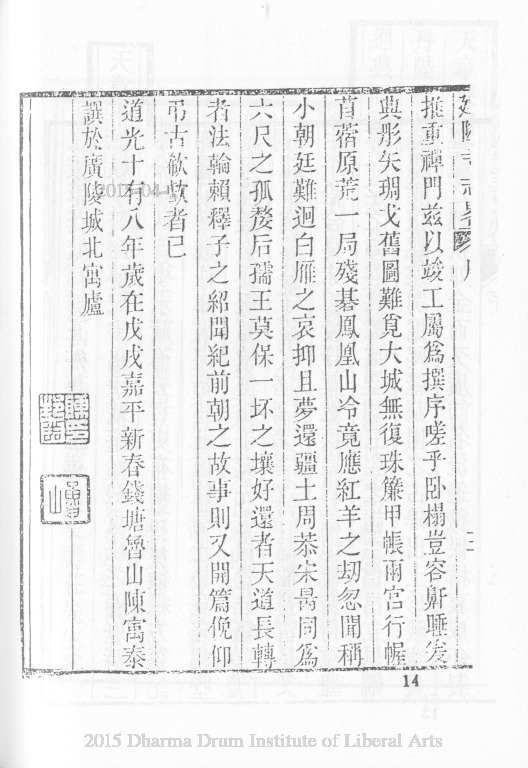 推重禪門茲以竣工屬爲撰序嗟乎卧榻豈容鼾睡爰
典彤矢琱戈舊圖難覓大城無復珠簾甲帳兩宮行幄
苜蓿原荒一局殘碁鳳凰山冷竟應紅羊之刼忽聞稱
小朝廷難迴白雁之哀抑且夢還疆土周恭宋昺同爲
六尺之孤嫠后孺王莫保一抔之壤好還者天道長轉
者法輪賴釋子之紹聞紀前朝之故事則又開篇俛仰
弔古欷歔者已
道光十有八年歲在戊戌嘉平新春錢塘魯山陳寓泰
譔於廣陵城北寓廬
14
2015 Dharma Drum Institute of Liberal Arts